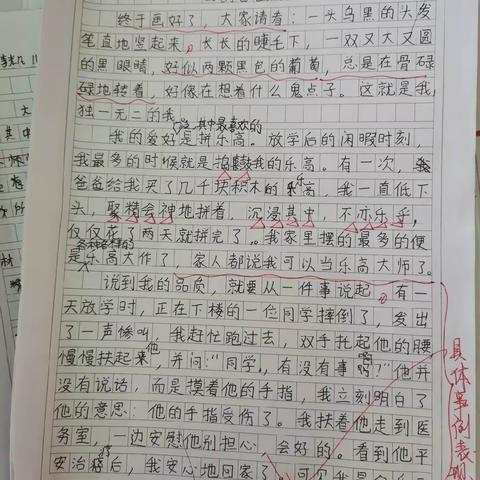 终于画好了，大家请看：一头乌黑的头发
笔直地竖起来，长长的睫毛下，一双又大又圆
的黑眼睛，好似两颗黑色的葡萄，总是在骨碌
碌地转着，好像在想着什么鬼点子。这就是我，
独一无二的我
其中最喜欢的
我的爱好是拼乐高。放学后的闲暇时刻，
我最多的时候就是捣鼓我的乐高。有一次，
爸爸给我买了几千块积木的乐高，我一直低下
头，聚精会神地拼着，沉浸其中，不亦乐乎，
仅仅花了两天就拼完了。我家里摆的最多的便
各种各样的
是乐高大作了，家人都说我可以当乐高大师了。
说到我的品质，就要从一件事说起。有一
天放学时，正在下楼的一位同学摔倒了，发出
了一声惨叫，我赶忙跑过去，双手托起他的腰
慢慢扶起来他，并问：“同学，有没有事吗？”他并
没有说话，而是摸着他的手指，我立刻明白了
他的意思：他的手指受伤了。我扶着他走到医
务室，一边安慰他别担心，会好的。看到他平
安治疗后，我安心地回家了
具体事例表现